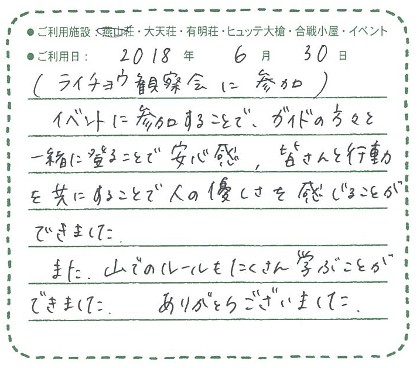 ●ご利用施設：燕山荘・大天荘・有明荘・ヒュッテ大槍・合戦小屋・イベント
●ご利用日： 2018 年 6 月 30 日
(ライチョウ観察会に参加)
イベントに参加することで、ガイドの方々と
一緒に登ることで安心感、皆さんと行動
を共にすることで人の優しさを感じることが
できました.
また、山でのルールもたくさん学ぶことが
できました. ありがとうございました.